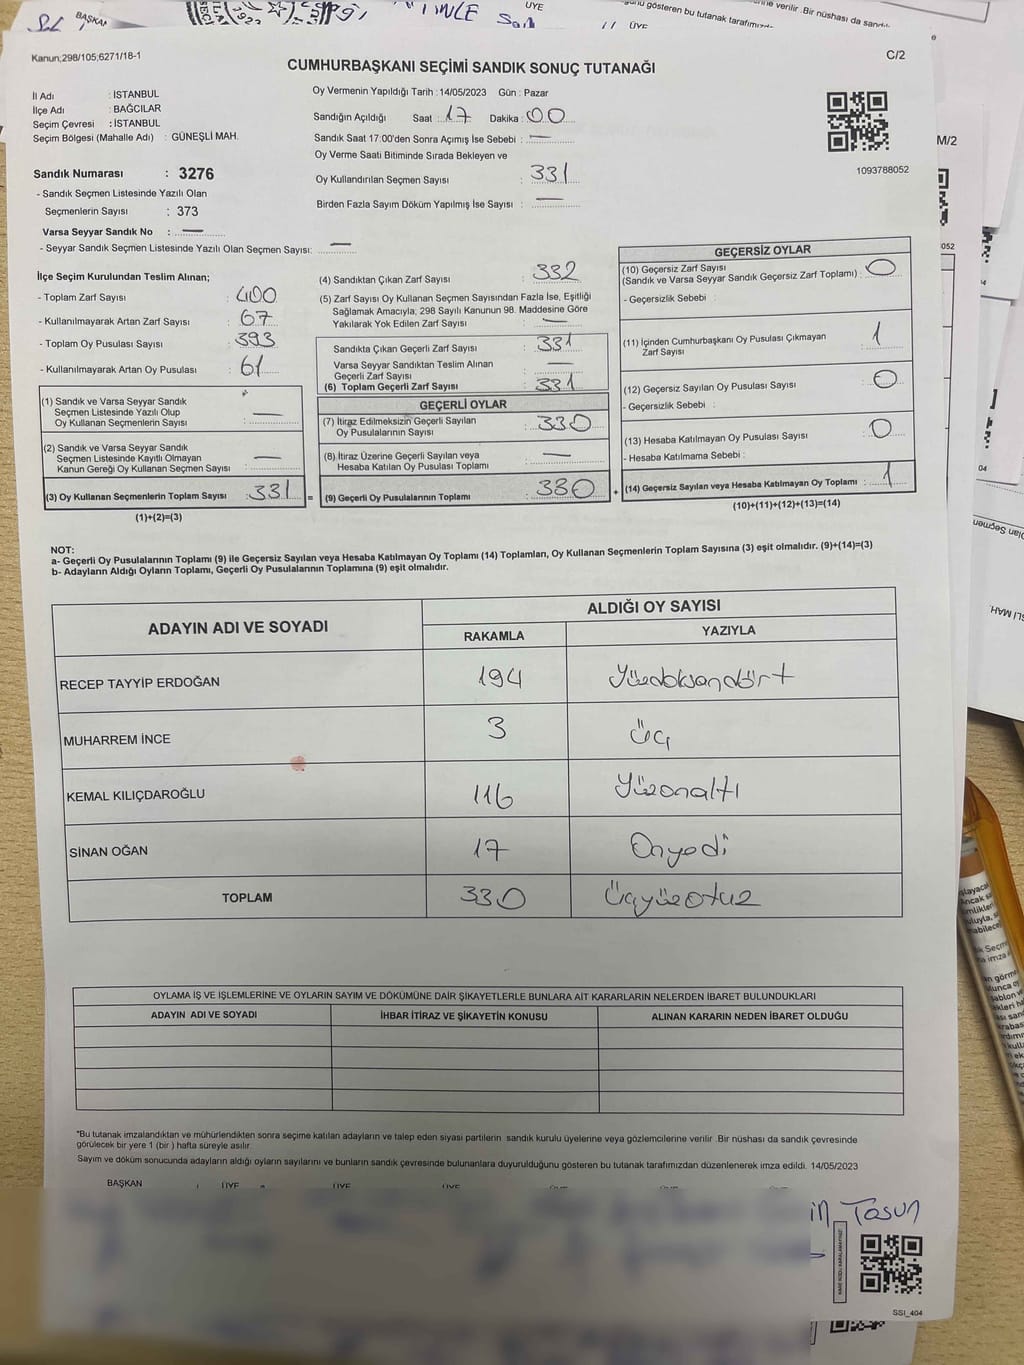 BAŞKAN
ÜYE
ÜYE
günü gösteren bu tutanak tarafımızdan
verilir .Bir nüshası da sandık
Kanun;298/105;6271/18-1
C/2
CUMHURBAŞKANI SEÇİMİ SANDIK SONUÇ TUTANAĞI
İl Adı : İSTANBUL
İlçe Adı : BAĞCILAR
Seçim Çevresi : İSTANBUL
Seçim Bölgesi (Mahalle Adı) : GÜNEŞLİ MAH.
Oy Vermenin Yapıldığı Tarih :14/05/2023 Gün : Pazar
Sandığın Açıldığı Saat : 17 Dakika : 00
Sandık Saat 17:00'den Sonra Açımış İse Sebebi : —
Oy Verme Saati Bitiminde Sırada Bekleyen ve
Oy Kullandırılan Seçmen Sayısı : 331
Birden Fazla Sayım Döküm Yapılmış İse Sayısı : —
1093788052
M/2
Sandık Numarası : 3276
- Sandık Seçmen Listesinde Yazılı Olan
Seçmenlerin Sayısı : 373
Varsa Seyyar Sandık No : —
- Seyyar Sandık Seçmen Listesinde Yazılı Olan Seçmen Sayısı: —
İlçe Seçim Kurulundan Teslim Alınan;
- Toplam Zarf Sayısı : 400
- Kullanılmayarak Artan Zarf Sayısı : 67
- Toplam Oy Pusulası Sayısı : 393
- Kullanılmayarak Artan Oy Pusulası : 61
(1) Sandık ve Varsa Seyyar Sandık
Seçmen Listesinde Yazılı Olup
Oy Kullanan Seçmenlerin Sayısı : —
(2) Sandık ve Varsa Seyyar Sandık
Seçmen Listesinde Kayıtlı Olmayan
Kanun Gereği Oy Kullanan Seçmen Sayısı : —
(3) Oy Kullanan Seçmenlerin Toplam Sayısı : 331 =
(1)+(2)=(3)
(4) Sandıktan Çıkan Zarf Sayısı : 332
(5) Zarf Sayısı Oy Kullanan Seçmen Sayısından Fazla İse, Eşitliği
Sağlamak Amacıyla; 298 Sayılı Kanunun 98. Maddesine Göre
Yakılarak Yok Edilen Zarf Sayısı : —
Sandıkta Çıkan Geçerli Zarf Sayısı : 331
Varsa Seyyar Sandıktan Teslim Alınan
Geçerli Zarf Sayısı : —
(6) Toplam Geçerli Zarf Sayısı : 331
GEÇERLİ OYLAR
(7) İtiraz Edilmeksizin Geçerli Sayılan
Oy Pusulalarının Sayısı : 330
(8) İtiraz Üzerine Geçerli Sayılan veya
Hesaba Katılan Oy Pusulası Toplamı : —
(9) Geçerli Oy Pusulalarının Toplamı : 330 +
GEÇERSİZ OYLAR
(10) Geçersiz Zarf Sayısı
(Sandık ve Varsa Seyyar Sandık Geçersiz Zarf Toplamı) : 0
- Geçersizlik Sebebi :
(11) İçinden Cumhurbaşkanı Oy Pusulası Çıkmayan
Zarf Sayısı : 1
(12) Geçersiz Sayılan Oy Pusulası Sayısı : 0
- Geçersizlik Sebebi :
(13) Hesaba Katılmayan Oy Pusulası Sayısı : 0
- Hesaba Katılmama Sebebi :
(14) Geçersiz Sayılan veya Hesaba Katılmayan Oy Toplamı : 1
(10)+(11)+(12)+(13)=(14)
NOT:
a- Geçerli Oy Pusulalarının Toplamı (9) ile Geçersiz Sayılan veya Hesaba Katılmayan Oy Toplamı (14) Toplamları, Oy Kullanan Seçmenlerin Toplam Sayısına (3) eşit olmalıdır. (9)+(14)=(3)
b- Adayların Aldığı Oyların Toplamı, Geçerli Oy Pusulalarının Toplamına (9) eşit olmalıdır.
ADAYIN ADI VE SOYADI
ALDIĞI OY SAYISI
RAKAMLA YAZIYLA
RECEP TAYYİP ERDOĞAN 194 Yüzdoksandört
MUHARREM İNCE 3 Üç
KEMAL KILIÇDAROĞLU 116 Yüzonaltı
SİNAN OĞAN 17 Onyedi
TOPLAM 330 Üçyüzotuz
OYLAMA İŞ VE İŞLEMLERİNE VE OYLARIN SAYIM VE DÖKÜMÜNE DAİR ŞİKAYETLERLE BUNLARA AİT KARARLARIN NELERDEN İBARET BULUNDUKLARI
ADAYIN ADI VE SOYADI İHBAR İTİRAZ VE ŞİKAYETİN KONUSU ALINAN KARARIN NEDEN İBARET OLDUĞU
*Bu tutanak imzalandıktan ve mühürlendikten sonra seçime katılan adayların ve talep eden siyasi partilerin sandık kurulu üyelerine veya gözlemcilerine verilir .Bir nüshası da sandık çevresinde
görülecek bir yere 1 (bir ) hafta süreyle asılır
Sayım ve döküm sonucunda adayların aldığı oyların sayılarını ve bunların sandık çevresinde bulunanlara duyurulduğunu gösteren bu tutanak tarafımızdan düzenlenerek imza edildi. 14/05/2023
BAŞKAN ÜYE ÜYE ÜYE
in Tosun
SSI_404